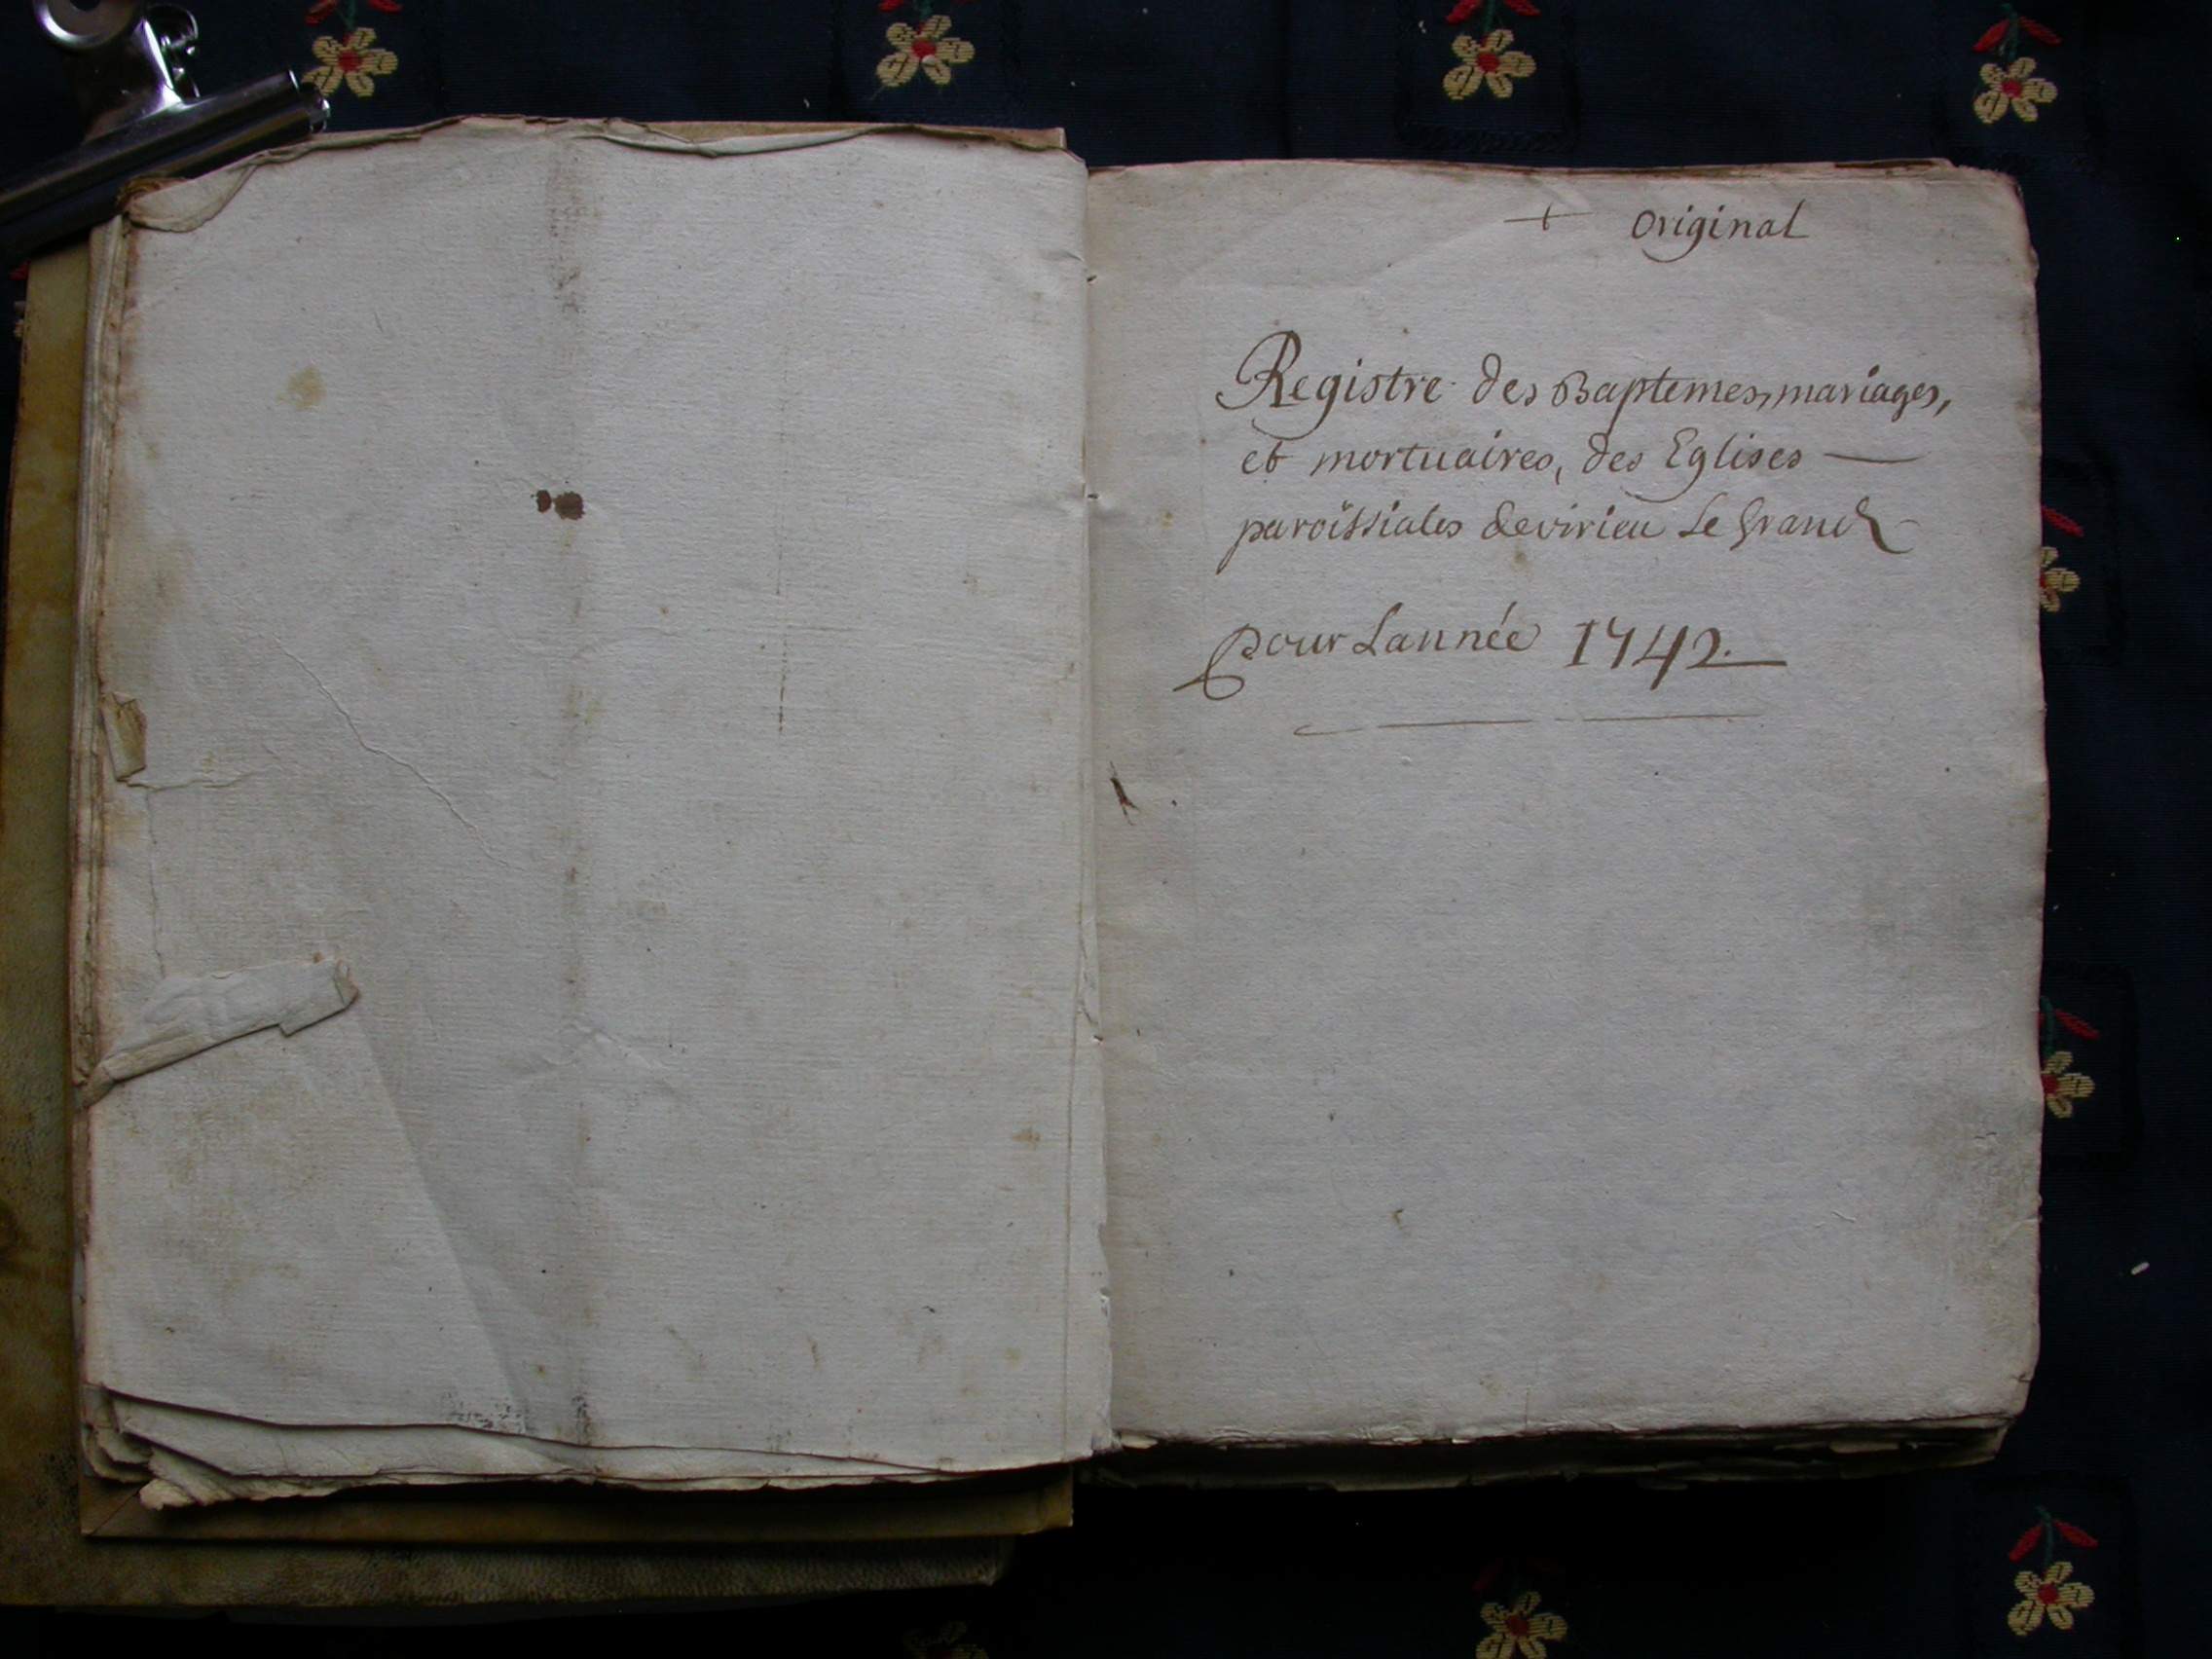 + original
Registre des Baptemes, mariages,
et mortuaires, des Eglises —
paroissiales de virieu Le Grand
pour Lannée 1742.